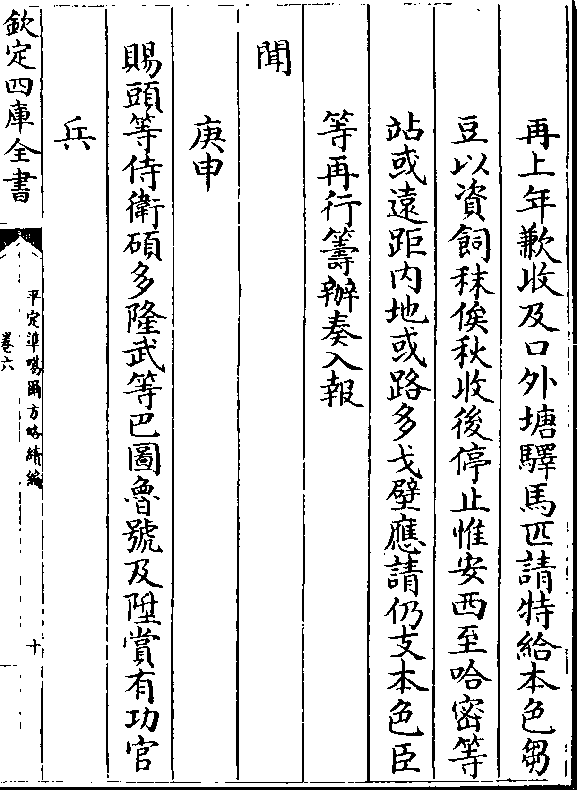 再上年歉收及口外塘驛馬匹請特給本色芻
豆以資飼秣俟秋收後停止惟安西至哈密等
站或遠距内地或路多戈壁應請仍支本色臣
等再行籌辦奏入報
聞
庚申
賜頭等侍衛碩多隆武等巴圖魯號及陞賞有功官
兵
欽定四庫全書
平定準噶爾方略續編
卷六
十